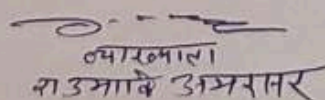 व्याख्याता
रा उमावि अमरसर